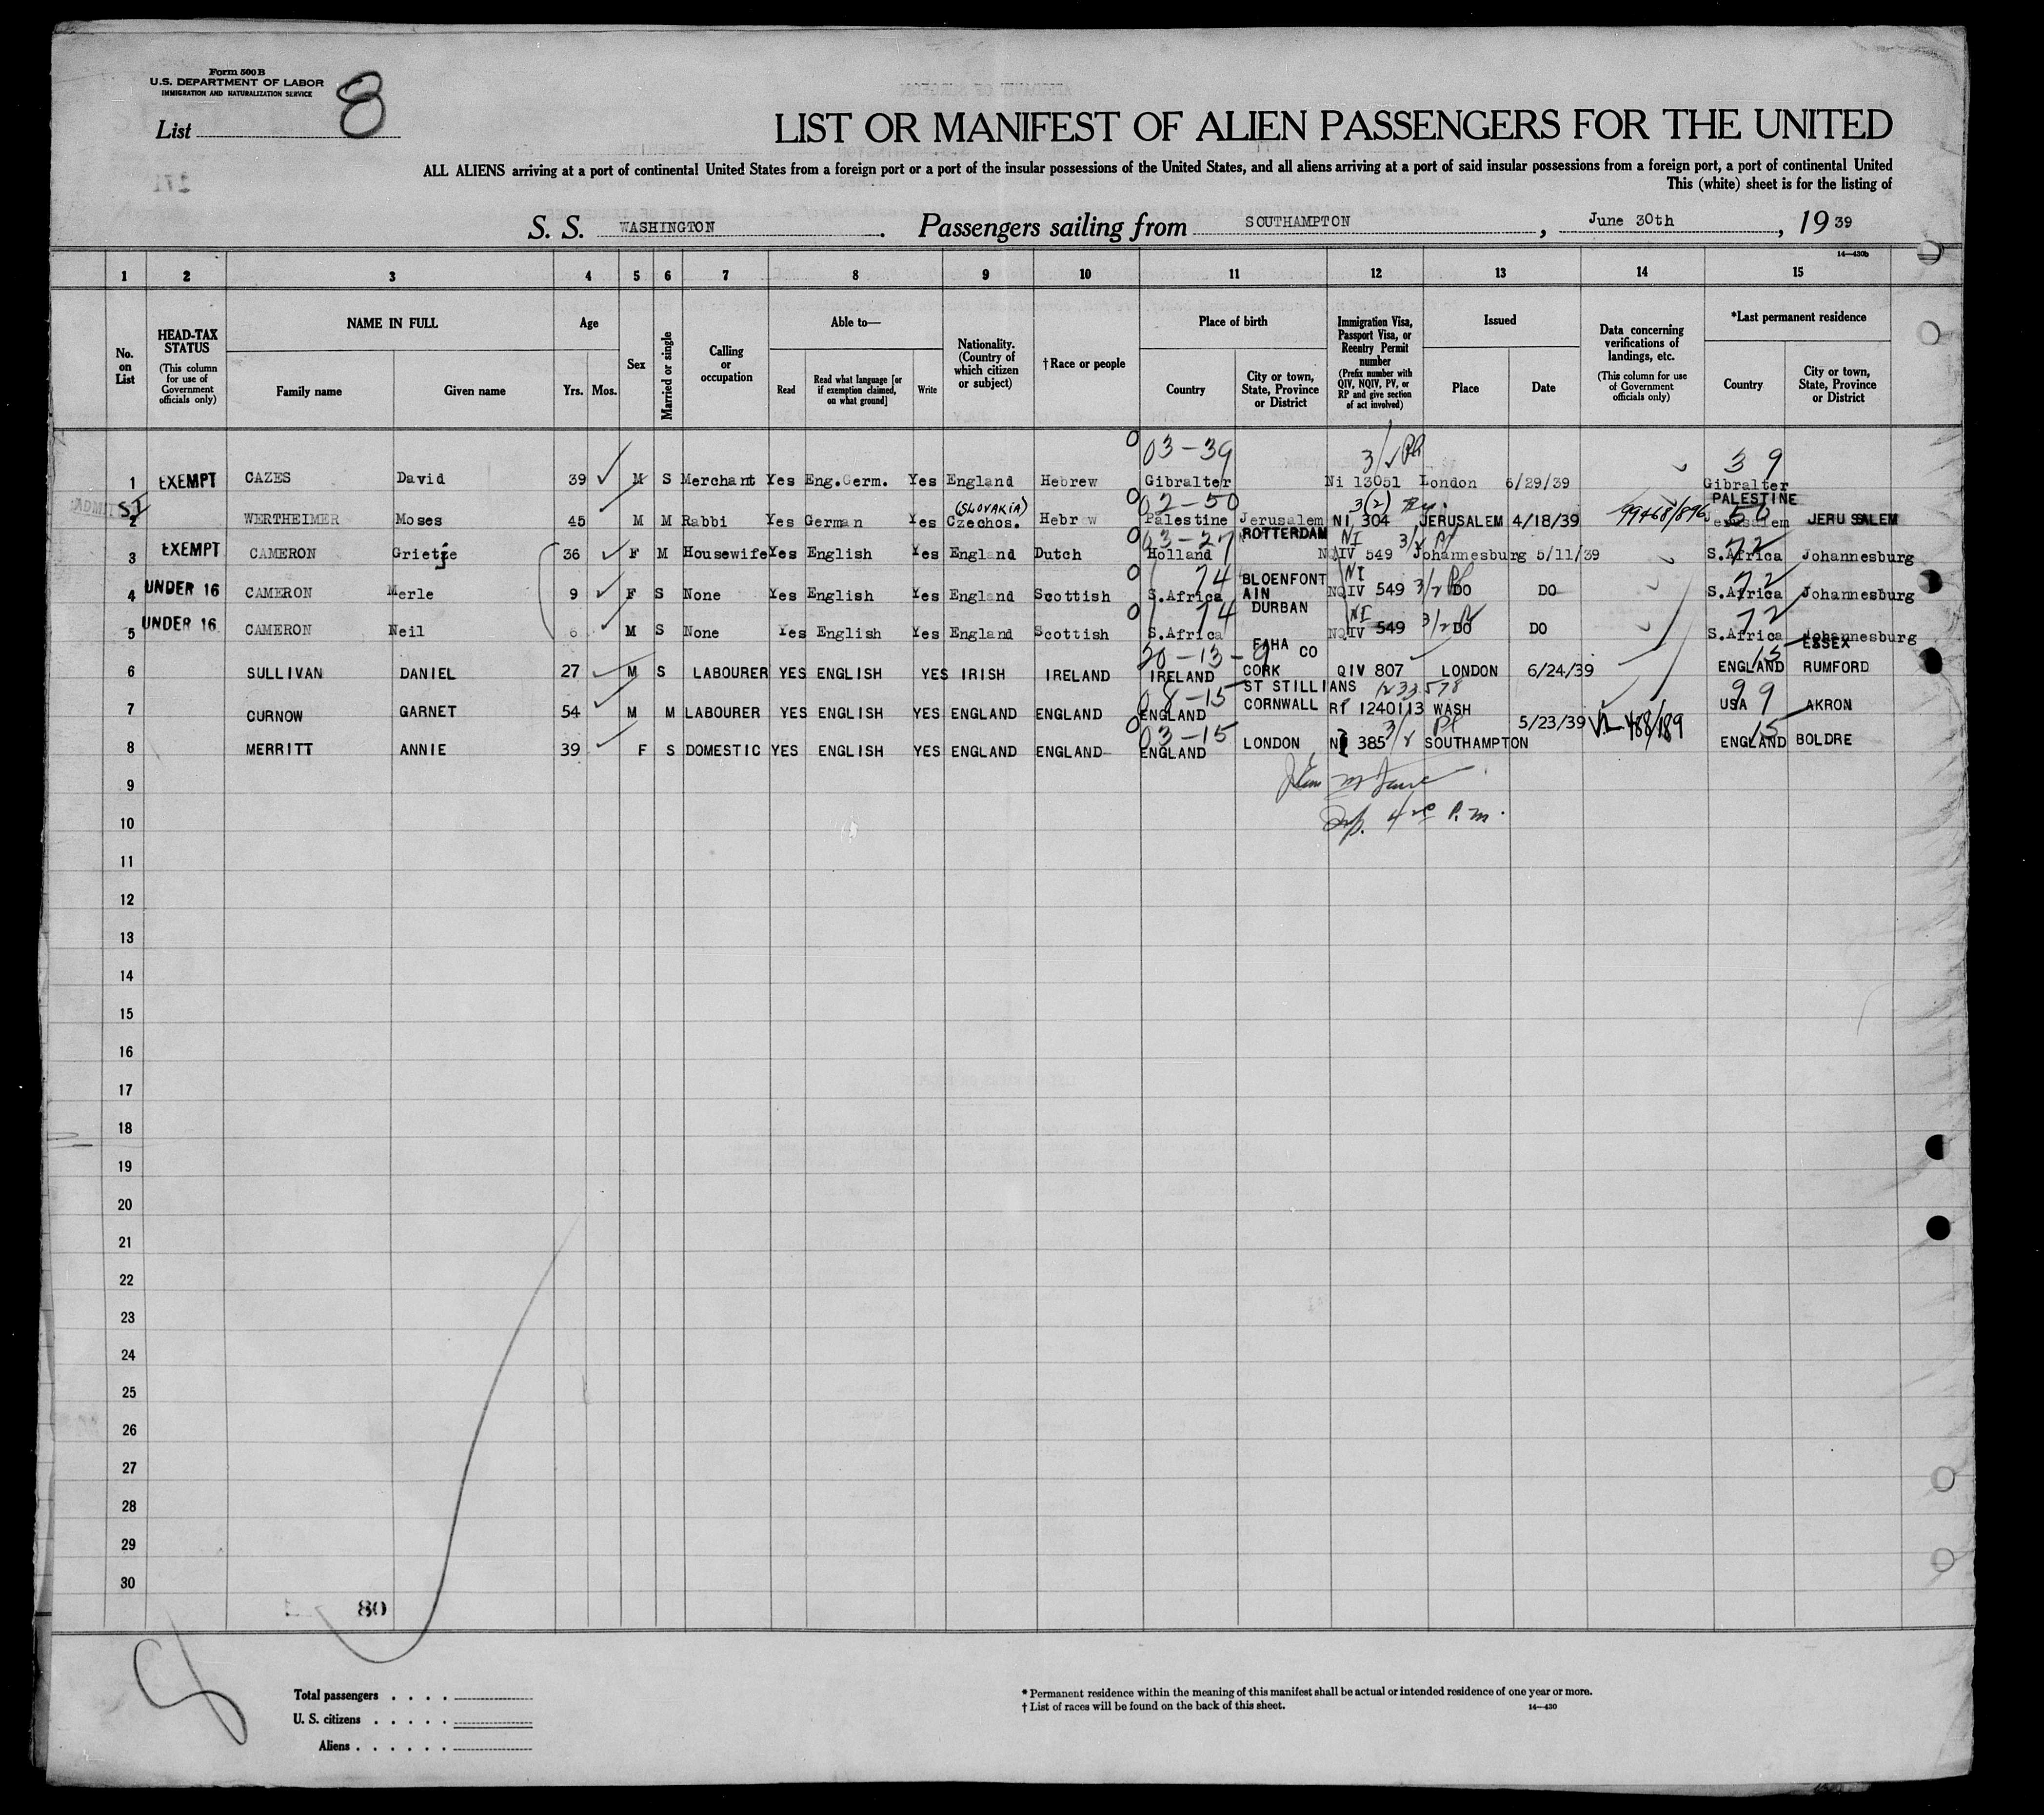 Form 500 B
U.S. DEPARTMENT OF LABOR
IMMIGRATION AND NATURALIZATION SERVICE
List 8
LIST OR MANIFEST OF ALIEN PASSENGERS FOR THE UNITED
ALL ALIENS arriving at a port of continental United States from a foreign port or a port of the insular possessions of the United States, and all aliens arriving at a port of said insular possessions from a foreign port, a port of continental United
This (white) sheet is for the listing of
S. S. WASHINGTON. Passengers sailing from SOUTHAMPTON, June 30th, 19 39
14—430b
1 2 3 4 5 6 7 8 9 10 11 12 13 14 15
No. on List
HEAD-TAX STATUS (This column for use of Government officials only)
NAME IN FULL
Family name
Given name
Age
Yrs. Mos.
Sex
Married or single
Calling or occupation
Able to—
Read
Read what language [or if exemption claimed, on what ground]
Write
Nationality. (Country of which citizen or subject)
†Race or people
Place of birth
Country
City or town, State, Province or District
Immigration Visa, Passport Visa, or Reentry Permit number (Prefix number with QIV, NQIV, PV, or RP and give section of act involved)
Issued
Place
Date
Data concerning verifications of landings, etc. (This column for use of Government officials only)
*Last permanent residence
Country
City or town, State, Province or District
03-39 39
1 EXEMPT CAZES David 39 M S Merchant Yes Eng.Germ. Yes England Hebrew Gibralter Ni 13051 London 6/29/39 Gibralter
(SLOVAKIA) 02-50 3(2) PALESTINE
2 WERTHEIMER Moses 45 M M Rabbi Yes German Yes Czechos. Hebr w Palestine Jerusalem NI 304 JERUSALEM 4/18/39 99468/896 Jerusalem 50 JERUSALEM
03-27 ROTTERDAM NI 72
3 EXEMPT CAMERON Grietje 36 F M Housewife Yes English Yes England Dutch Holland NQIV 549 Johannesburg 5/11/39 S.Africa Johannesburg
74 BLOENFONT NI 72
4 UNDER 16 CAMERON Merle 9 F S None Yes English Yes England Scottish S.Africa AIN NQIV 549 3/2 DO DO S.Africa Johannesburg
74 DURBAN NI 72
5 UNDER 16 CAMERON Neil 6 M S None Yes English Yes England Scottish S.Africa NQIV 549 3/2 DO DO S.Africa Johannesburg
20-13-9 FAHA CO 15 ESSEX
6 SULLIVAN DANIEL 27 M S LABOURER YES ENGLISH YES IRISH IRELAND IRELAND CORK QIV 807 LONDON 6/24/39 ENGLAND RUMFORD
08-15 ST STILLIANS 1233578 99
7 CURNOW GARNET 54 M M LABOURER YES ENGLISH YES ENGLAND ENGLAND ENGLAND CORNWALL RP 1240113 WASH USA AKRON
03-15 5/23/39 VL 488/189 15
8 MERRITT ANNIE 39 F S DOMESTIC YES ENGLISH YES ENGLAND ENGLAND ENGLAND LONDON NI 385 3/2 SOUTHAMPTON ENGLAND BOLDRE
9
10
11
12
13
14
15
16
17
18
19
20
21
22
23
24
25
26
27
28
29
30
80
Total passengers
U. S. citizens
Aliens
* Permanent residence within the meaning of this manifest shall be actual or intended residence of one year or more.
† List of races will be found on the back of this sheet.
14—430